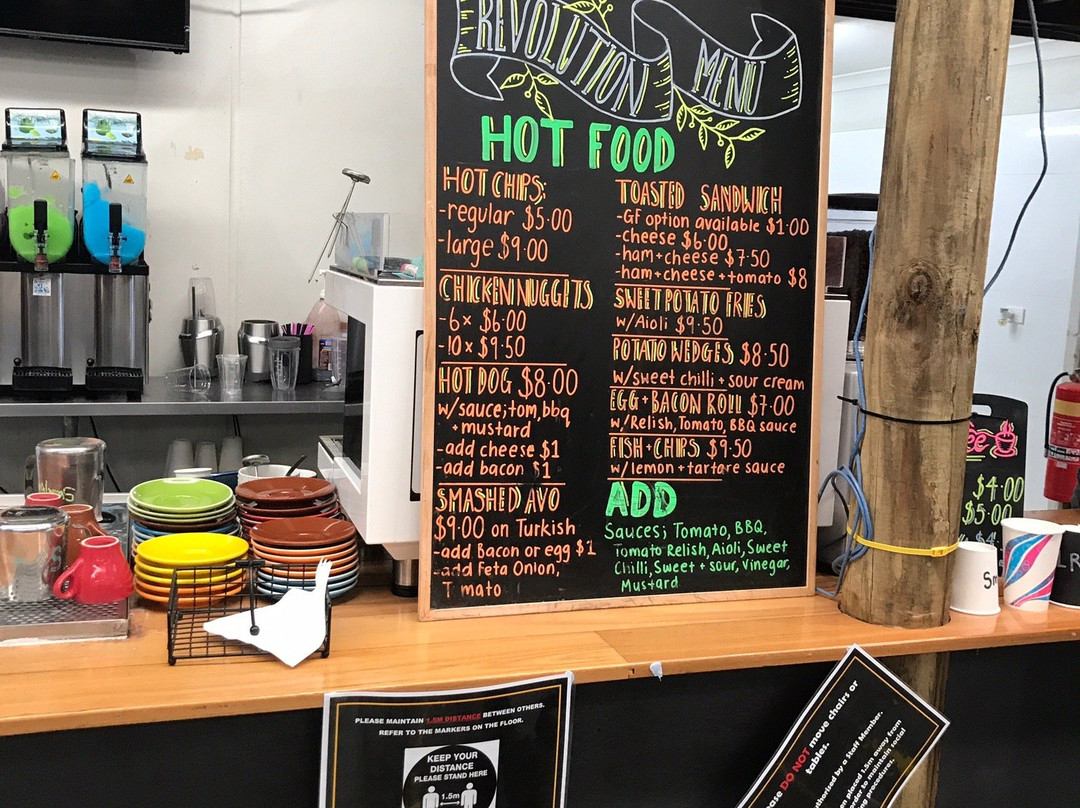 REVOLUTION MENU
HOT FOOD
HOT CHIPS;
-regular $5.00
-large $9.00
CHICKEN NUGGETS
-6x $6.00
-10x $9.50
HOT DOG $8.00
w/sauce;tom,bbq
+mustard
-add cheese $1
-add bacon $1
SMASHED AVO
$9.00 on Turkish
-add Bacon or egg $1
-add Feta Onion,
T mato
TOASTED SANDWICH
-GF option available $1.00
-cheese $6.00
-ham+cheese $7.50
-ham+cheese+tomato $8
SWEET POTATO FRIES
w/Aioli $9.50
POTATO WEDGES $8.50
w/sweet chilli + sour cream
EGG+BACON ROLL $7.00
w/Relish, Tomato, BBQ sauce
FISH+CHIPS $9.50
w/lemon+tartare sauce
ADD
Sauces; Tomato, BBQ,
Tomato Relish, Aioli, Sweet
Chilli, Sweet + sour, Vinegar,
Mustard
$4.00
$5.00
PLEASE MAINTAIN 1.5M DISTANCE BETWEEN OTHERS.
REFER TO THE MARKERS ON THE FLOOR.
KEEP YOUR
DISTANCE
PLEASE STAND HERE
1.5m
DO NOT move chairs or
tables.
by a Staff Member.
placed 1.5m away from
order to maintain social
procedures.